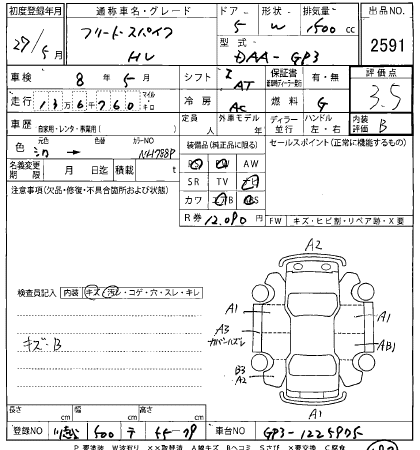 初度登録年月 通称車名・グレード ドア 形状 排気量 出品NO
27/5月 フリードスパイク HV 5 W 1500 cc 2591
型式 DAA-GP3
車検 8年5月 シフト AT 保証書 有・無 評価点
走行 136760 マイル キロ 冷房 AC 燃料 G 3.5
車歴 自家用・レンタ・事業用( ) 定員 人 外車モデル 年 ディーラー 並行 ハンドル 左・右 内装評価 B
色 元色 色替 カラーNO NH788P
装備品(純正品に限る) セールスポイント(正常に機能するもの)
PS PW AW
名義変更期限 月 日迄 積載 t SR TV
注意事項(欠品・修復・不具合箇所および状態) カワ AB
R券 12,090 FW キズ・ヒビ割・リペア跡・X要
A2
検査員記入 内装 キズ・汚レ・コゲ・穴・スレ・キレ
A1 A1
キズ・B
A3 カバーハズレ AB1
B3 A2
A1
長さ cm 幅 cm 高さ cm
登録NO 500 テ 車台NO GP3-1225905
P要塗装 W波有り XX取替済 A線キズ Bヘコミ Sさび X要交換 C腐食